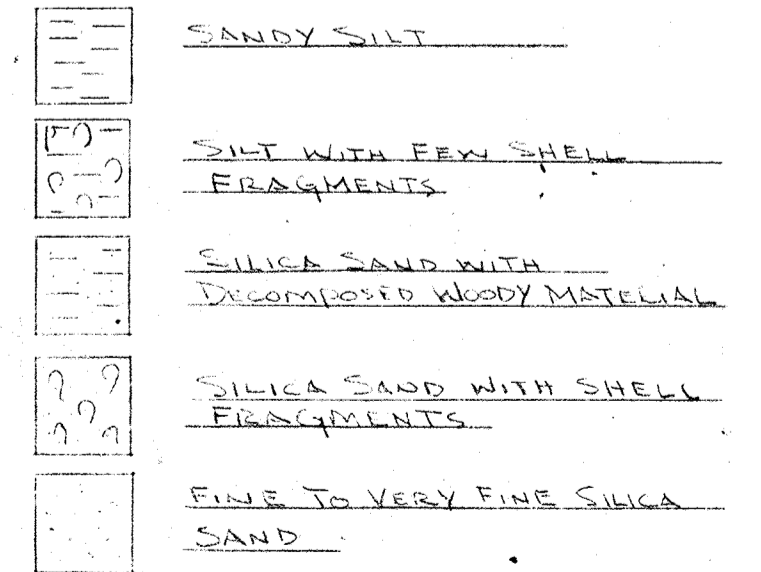 SANDY SILT
SILT WITH FEW SHELL
FRAGMENTS
SILICA SAND WITH
DECOMPOSED WOODY MATERIAL
SILICA SAND WITH SHELL
FRAGMENTS
FINE TO VERY FINE SILICA
SAND